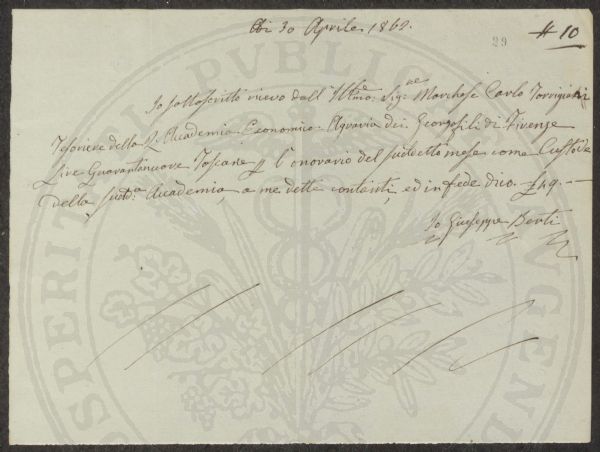 Adi 30 Aprile 1862.
29
# 10
Io sottoscritto ricevo dall'Illmo. Sigre. Marchese Carlo Torrigiani
Tesoriere della R. Accademia Economico-Agraria dei Georgofili di Firenze
Lire Quarantanove Toscane p l'onorario del suddetto mese come Custode
della sudda. Accademia, a me dette contanti, ed in fede dico £49.—
Io Giuseppe Berti
PROSPERITA PUBBLICA